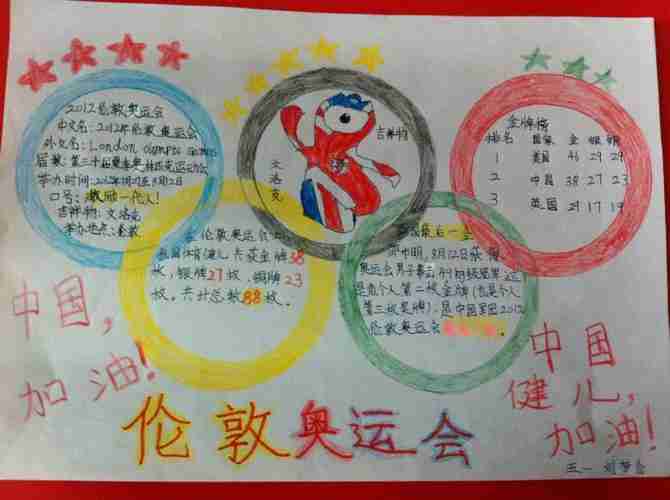 2012伦敦奥运会
中文名:2012年伦敦奥运会
外文名:London olympic games
届数:第三十届夏季奥林匹克运动会
举办时间:2012年7月27日至8月12日
口号:激励一代人!
吉祥物:文洛克
举办地点:伦敦
吉祥物
文洛克
金牌榜
排名 国家 金 银 铜
1 美国 46 29 29
2 中国 38 27 23
3 英国 29 17 19
在伦敦奥运会上
我国体育健儿共获金牌38
枚,银牌27枚,铜牌23
枚。共计总数88枚。
最后一金
邹市明,8月12日获得
奥运会男子拳击49
是个人第二枚金牌(也是个人
第三枚奖牌),是中国军团2012
伦敦奥运会
中国,
加油!
中国
健儿,
加油!
伦敦奥运会
五一 刘梦